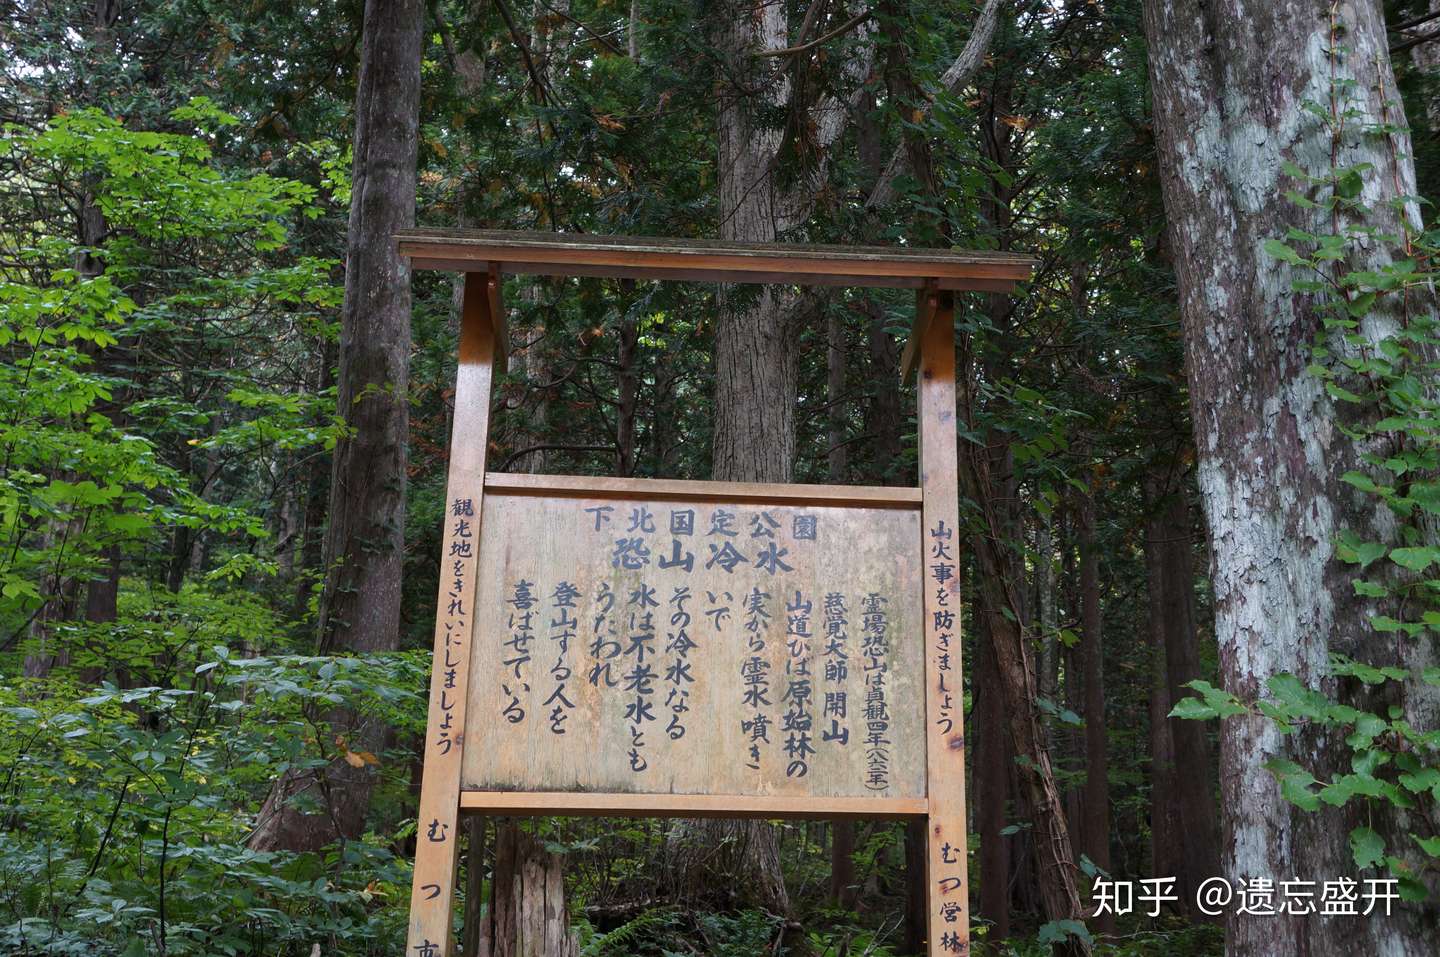 下北国定公園
恐山冷水
霊場恐山は貞観四年(八六二年)
慈覚大師 開山
山道ひは原始林の
実から霊水 噴き
いで
その冷水なる
水は不老水とも
うたわれ
登山する人を
喜ばせている
山火事を防ぎましょう
むつ営林
観光地をきれいにしましょう
むつ市
知乎 @遗忘盛开